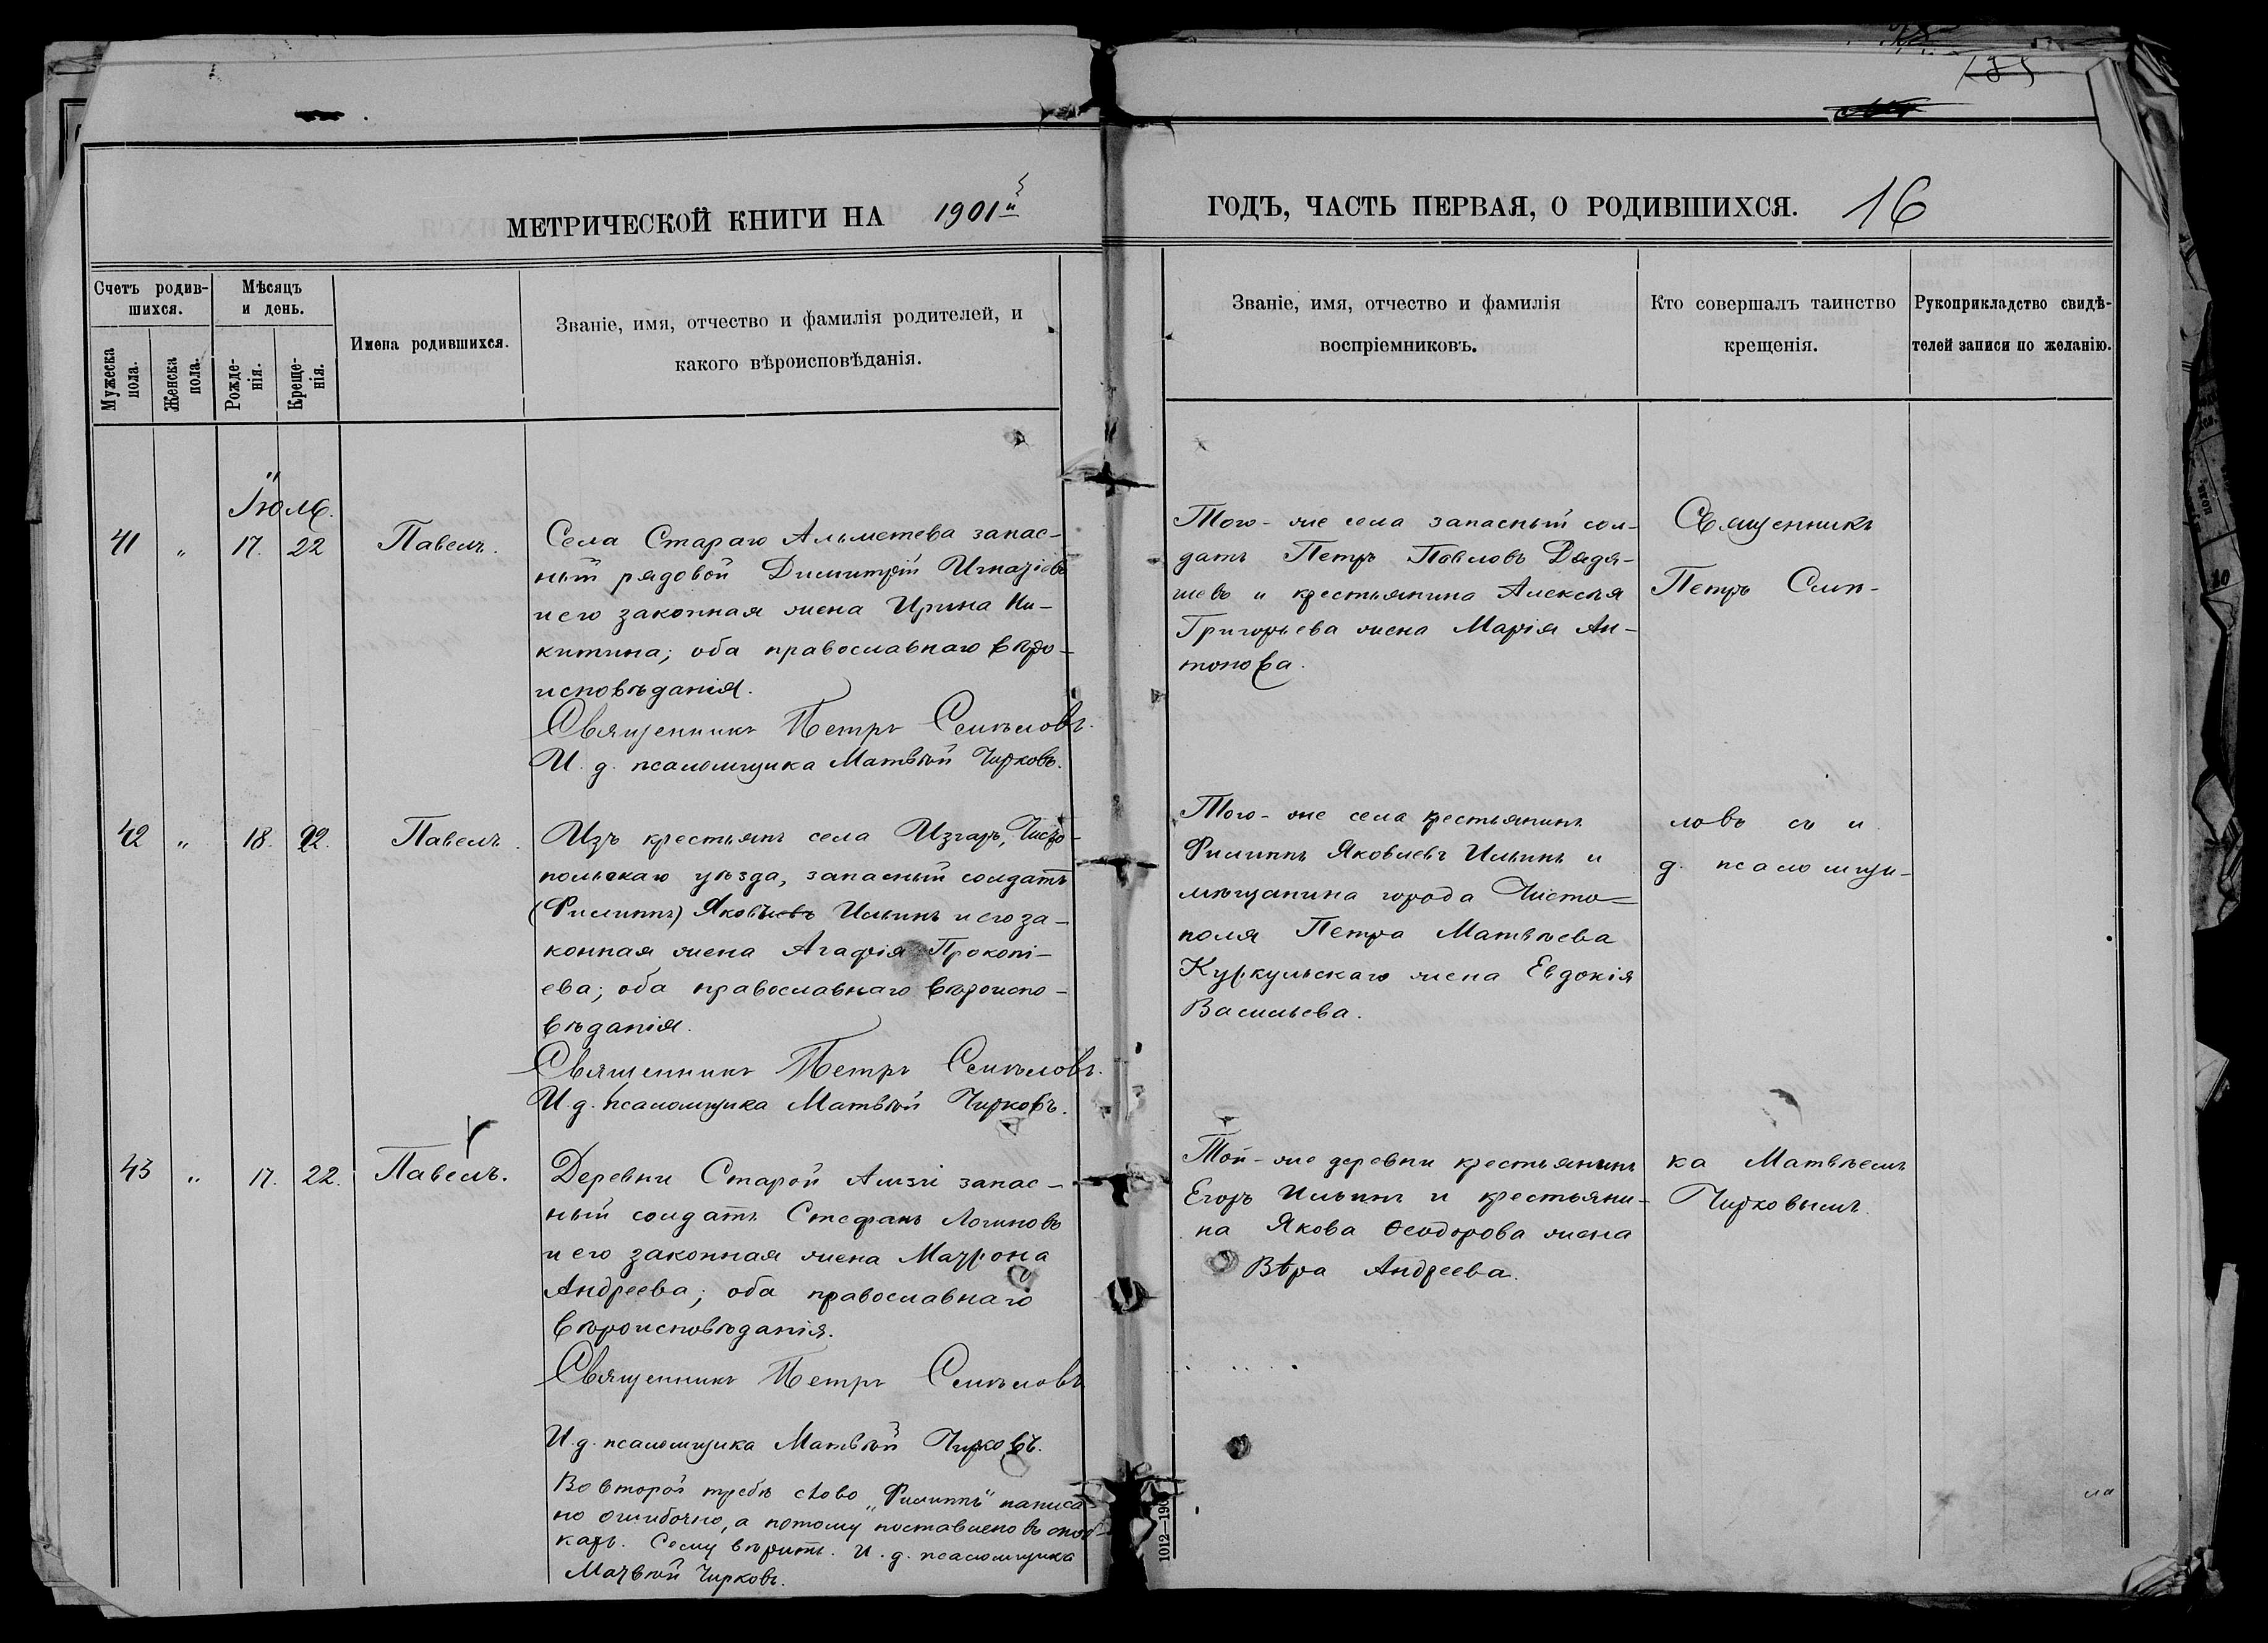 МЕТРИЧЕСКОЙ КНИГИ НА 1901й
ГОДЪ, ЧАСТЬ ПЕРВАЯ, О РОДИВШИХСЯ. 16
Счетъ родив-
шихся.
Мужеска
пола.
Женска
пола.
Мѣсяцъ
и день.
Рожде-
нія.
Креще-
нія.
Имена родившихся.
Званіе, имя, отчество и фамилія родителей, и
какого вѣроисповѣданія.
Званіе, имя, отчество и фамилія
воспріемниковъ.
Кто совершалъ таинство
крещенія.
Рукоприкладство свидѣ-
телей записи по желанію.
Іюль.
41 " 17. 22 Павелъ.
Села Стараго Альметева запас-
ный рядовой Димитрій Игнатіевъ
и его законная жена Ирина Ни-
китина; оба православнаго вѣро-
исповѣданія.
Священникъ Петръ Смѣловъ.
И. д. псаломщика Матвѣй Чирковъ.
Того-же села запасный сол-
датъ Петръ Павловъ Дядя-
шевъ и крестьянина Алексѣя
Григорьева жена Марія Ан-
тонова.
Священникъ
Петръ Смѣ-
42 " 18. 22. Павелъ.
Изъ крестьянъ села Изгаръ, Чисто-
польскаго уѣзда, запасный солдатъ
(Филиппъ) Яковлевъ Ильинъ и его за-
конная жена Агафія Прокопі-
ева; оба православнаго вѣроиспо-
вѣданія.
Священникъ Петръ Смѣловъ.
И. д. псаломщика Матвѣй Чирковъ.
Того-же села крестьянинъ
Филиппъ Яковлевъ Ильинъ и
мѣщанина города Чисто-
поля Петра Матвѣева
Куркульскаго жена Евдокія
Васильева.
ловъ съ и.
д. псаломщи-
43 " 17. 22. Павелъ.
Деревни Старой Амзи запас-
ный солдатъ Стефанъ Логиновъ
и его законная жена Матрона
Андреева; оба православнаго
вѣроисповѣданія.
Священникъ Петръ Смѣловъ
И. д. псаломщика Матвѣй Чирковъ.
Той-же деревни крестьянинъ
Егоръ Ильинъ и крестьяни-
на Якова Ѳеодорова жена
Вѣра Андреева.
ка Матвѣемъ
Чирковымъ.
Во второй требѣ слово „Филиппъ" написа-
но ошибочно, а потому поставлено въ скоб-
кахъ. Сему вѣрить. И. д. псаломщика
Матвѣй Чирковъ.
1012—190